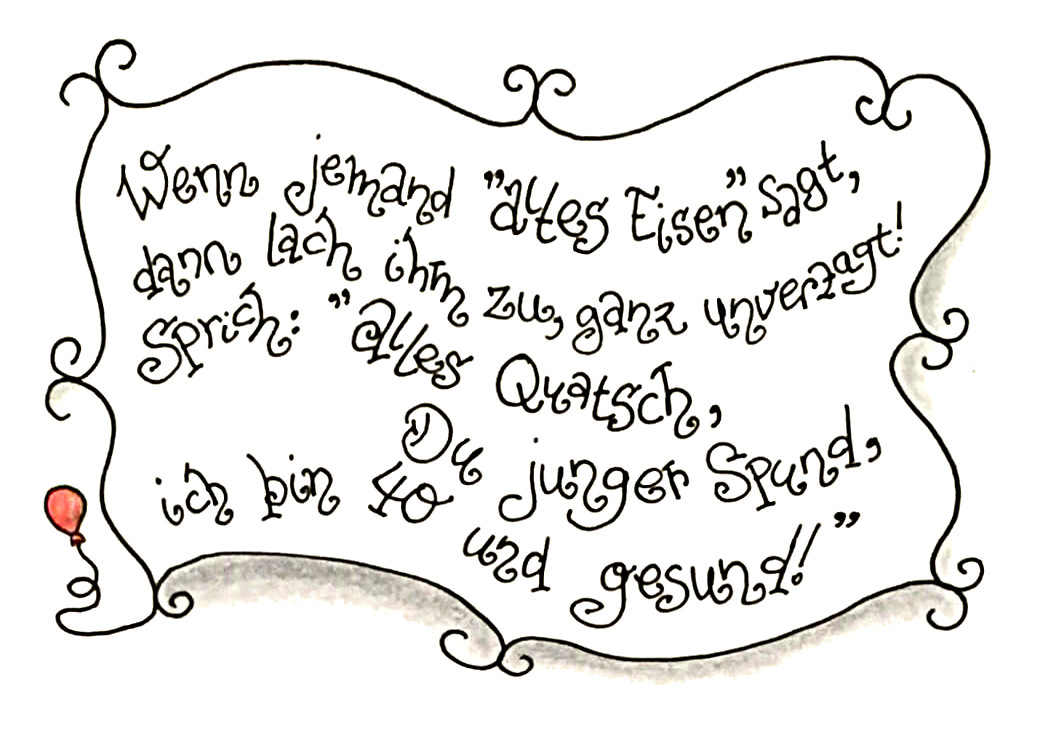 Wenn jemand "altes Eisen" sagt,
dann lach ihm zu, ganz unverzagt!
Sprich: "alles Quatsch,
Du junger Spund,
ich bin 40
und gesund!"